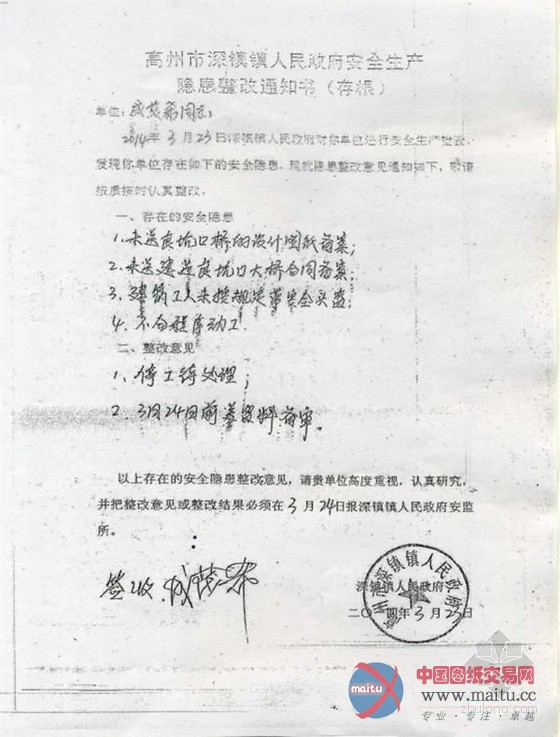 高州市深镇镇人民政府安全生产
隐患整改通知书（存根）
单位：成英弟同志：
2014年3月23日深镇镇人民政府对你单位进行安全生产检查，
发现你单位存在如下的安全隐患，现就隐患整改意见通知如下，敬请
按质按时认真整改。
一、存在的安全隐患
1、未送良坑口桥的设计图纸备案；
2、未送建造良坑口大桥合同备案；
3、建筑工人未按规定带安全头盔；
4、不合程序动工。
二、整改意见
1、停工待处理；
2、3月24日前 资料备审。
以上存在的安全隐患整改意见，请贵单位高度重视，认真研究，
并把整改意见或整改结果必须在3月24日报深镇镇人民政府安监
所。
签收：
深镇镇人民政府
二〇一四年3月23日
高州市深镇镇人民政府
maitu
中国图纸交易网
www.maitu.cc
zhulong.com
专业·专注·卓越